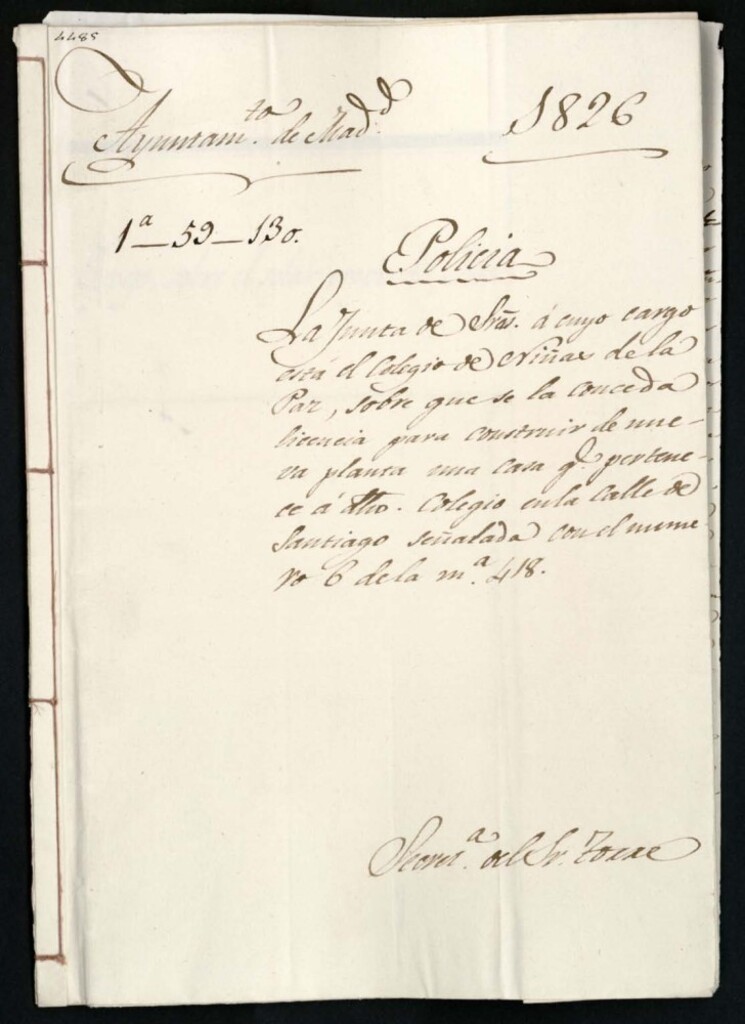 4485
Ayuntam.to de Mad.d 1826
1a_59_130.
Policia
La Junta de Srãs. á cuyo cargo
está el Colegio de Niñas de la
Paz, sobre que se la conceda
licencia para construir de nue-
va planta una casa q.e pertene-
ce á dho. Colegio en la Calle de
Santiago señalada con el nume-
ro 6 de la m.a 418.
Secret.a del Sr.